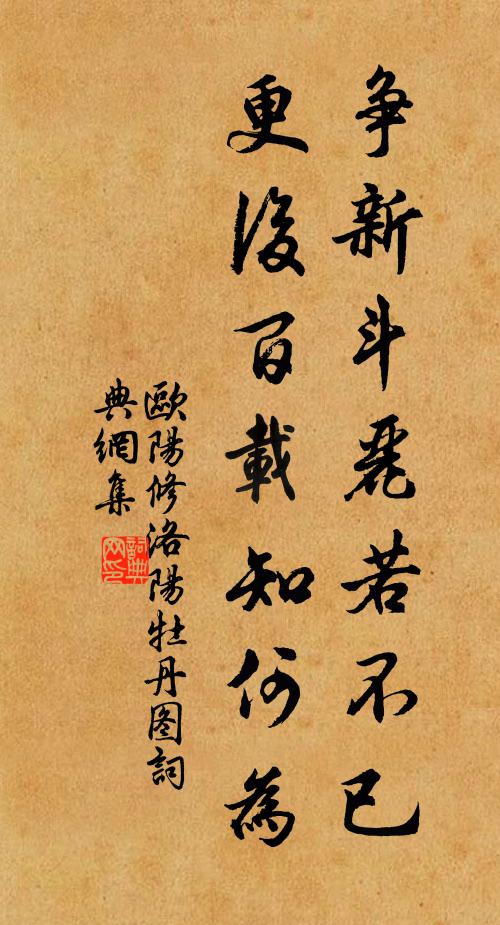 争新斗麗若不已
更後百載知何為
歐陽修洛陽牡丹图詞
典網集
詞典
网印